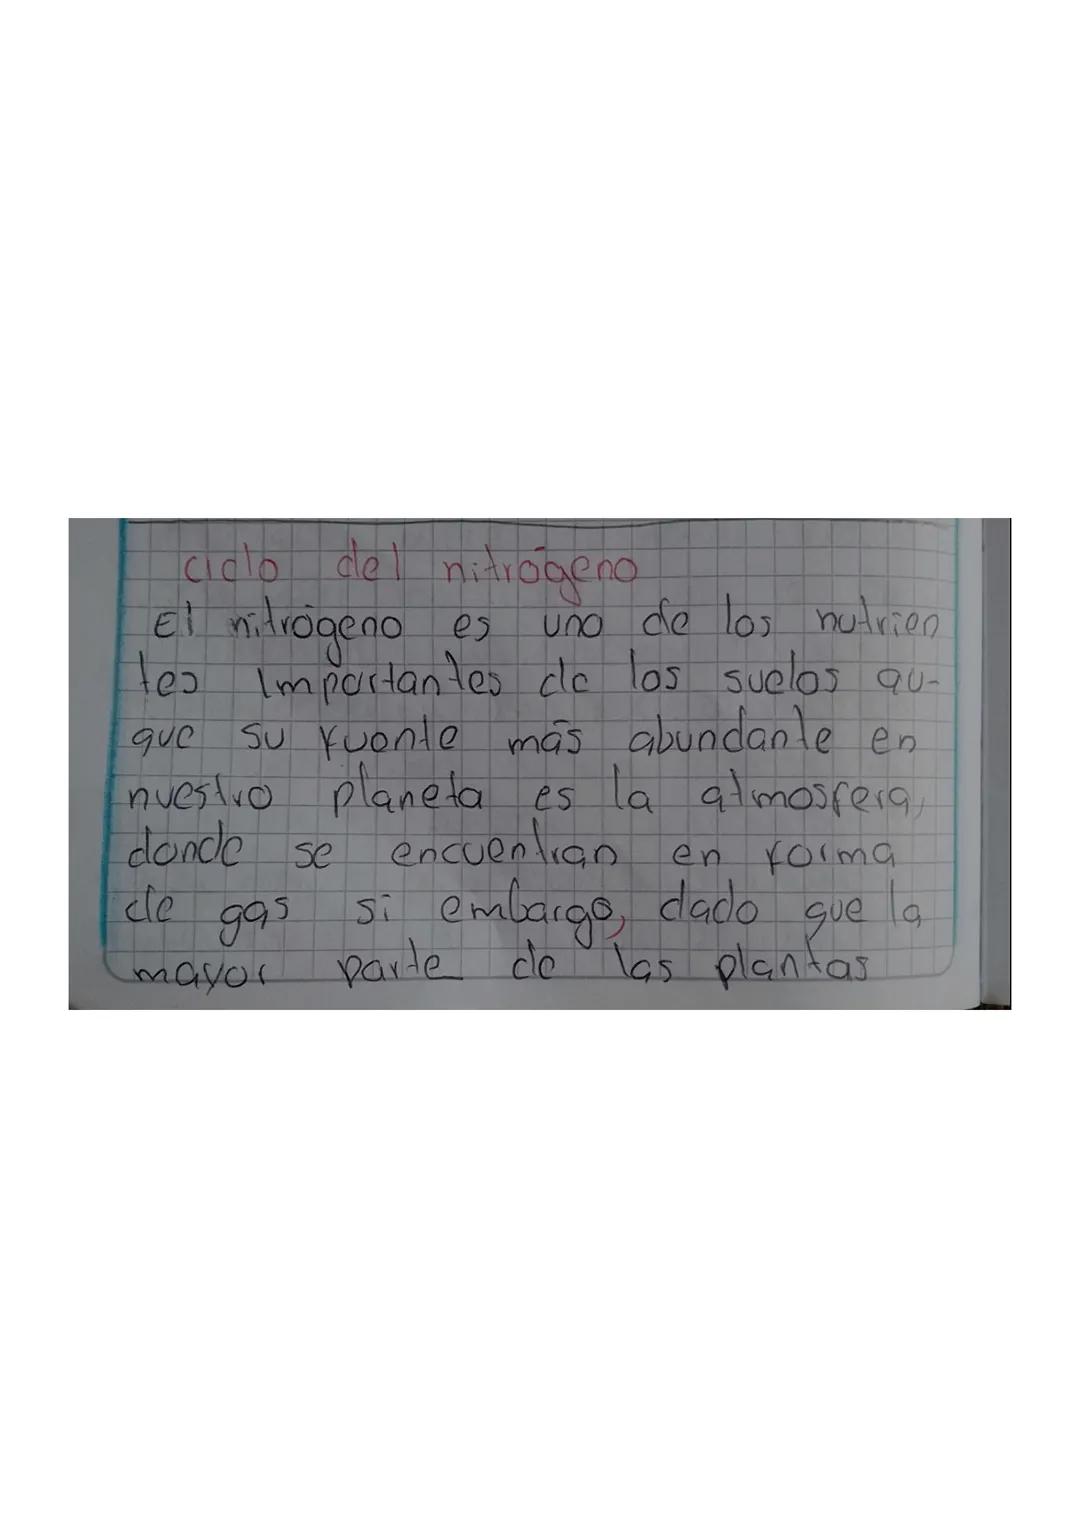 ciclo del nitrógeno
El nitrógeno es uno de los nutrien
tes importantes de los suelos au-
que su fuente más abundante en
nuestro planeta es la atmosfera,
donde se encuentran en forma
de gas si embargo, dado que la
mayor parte de las plantas